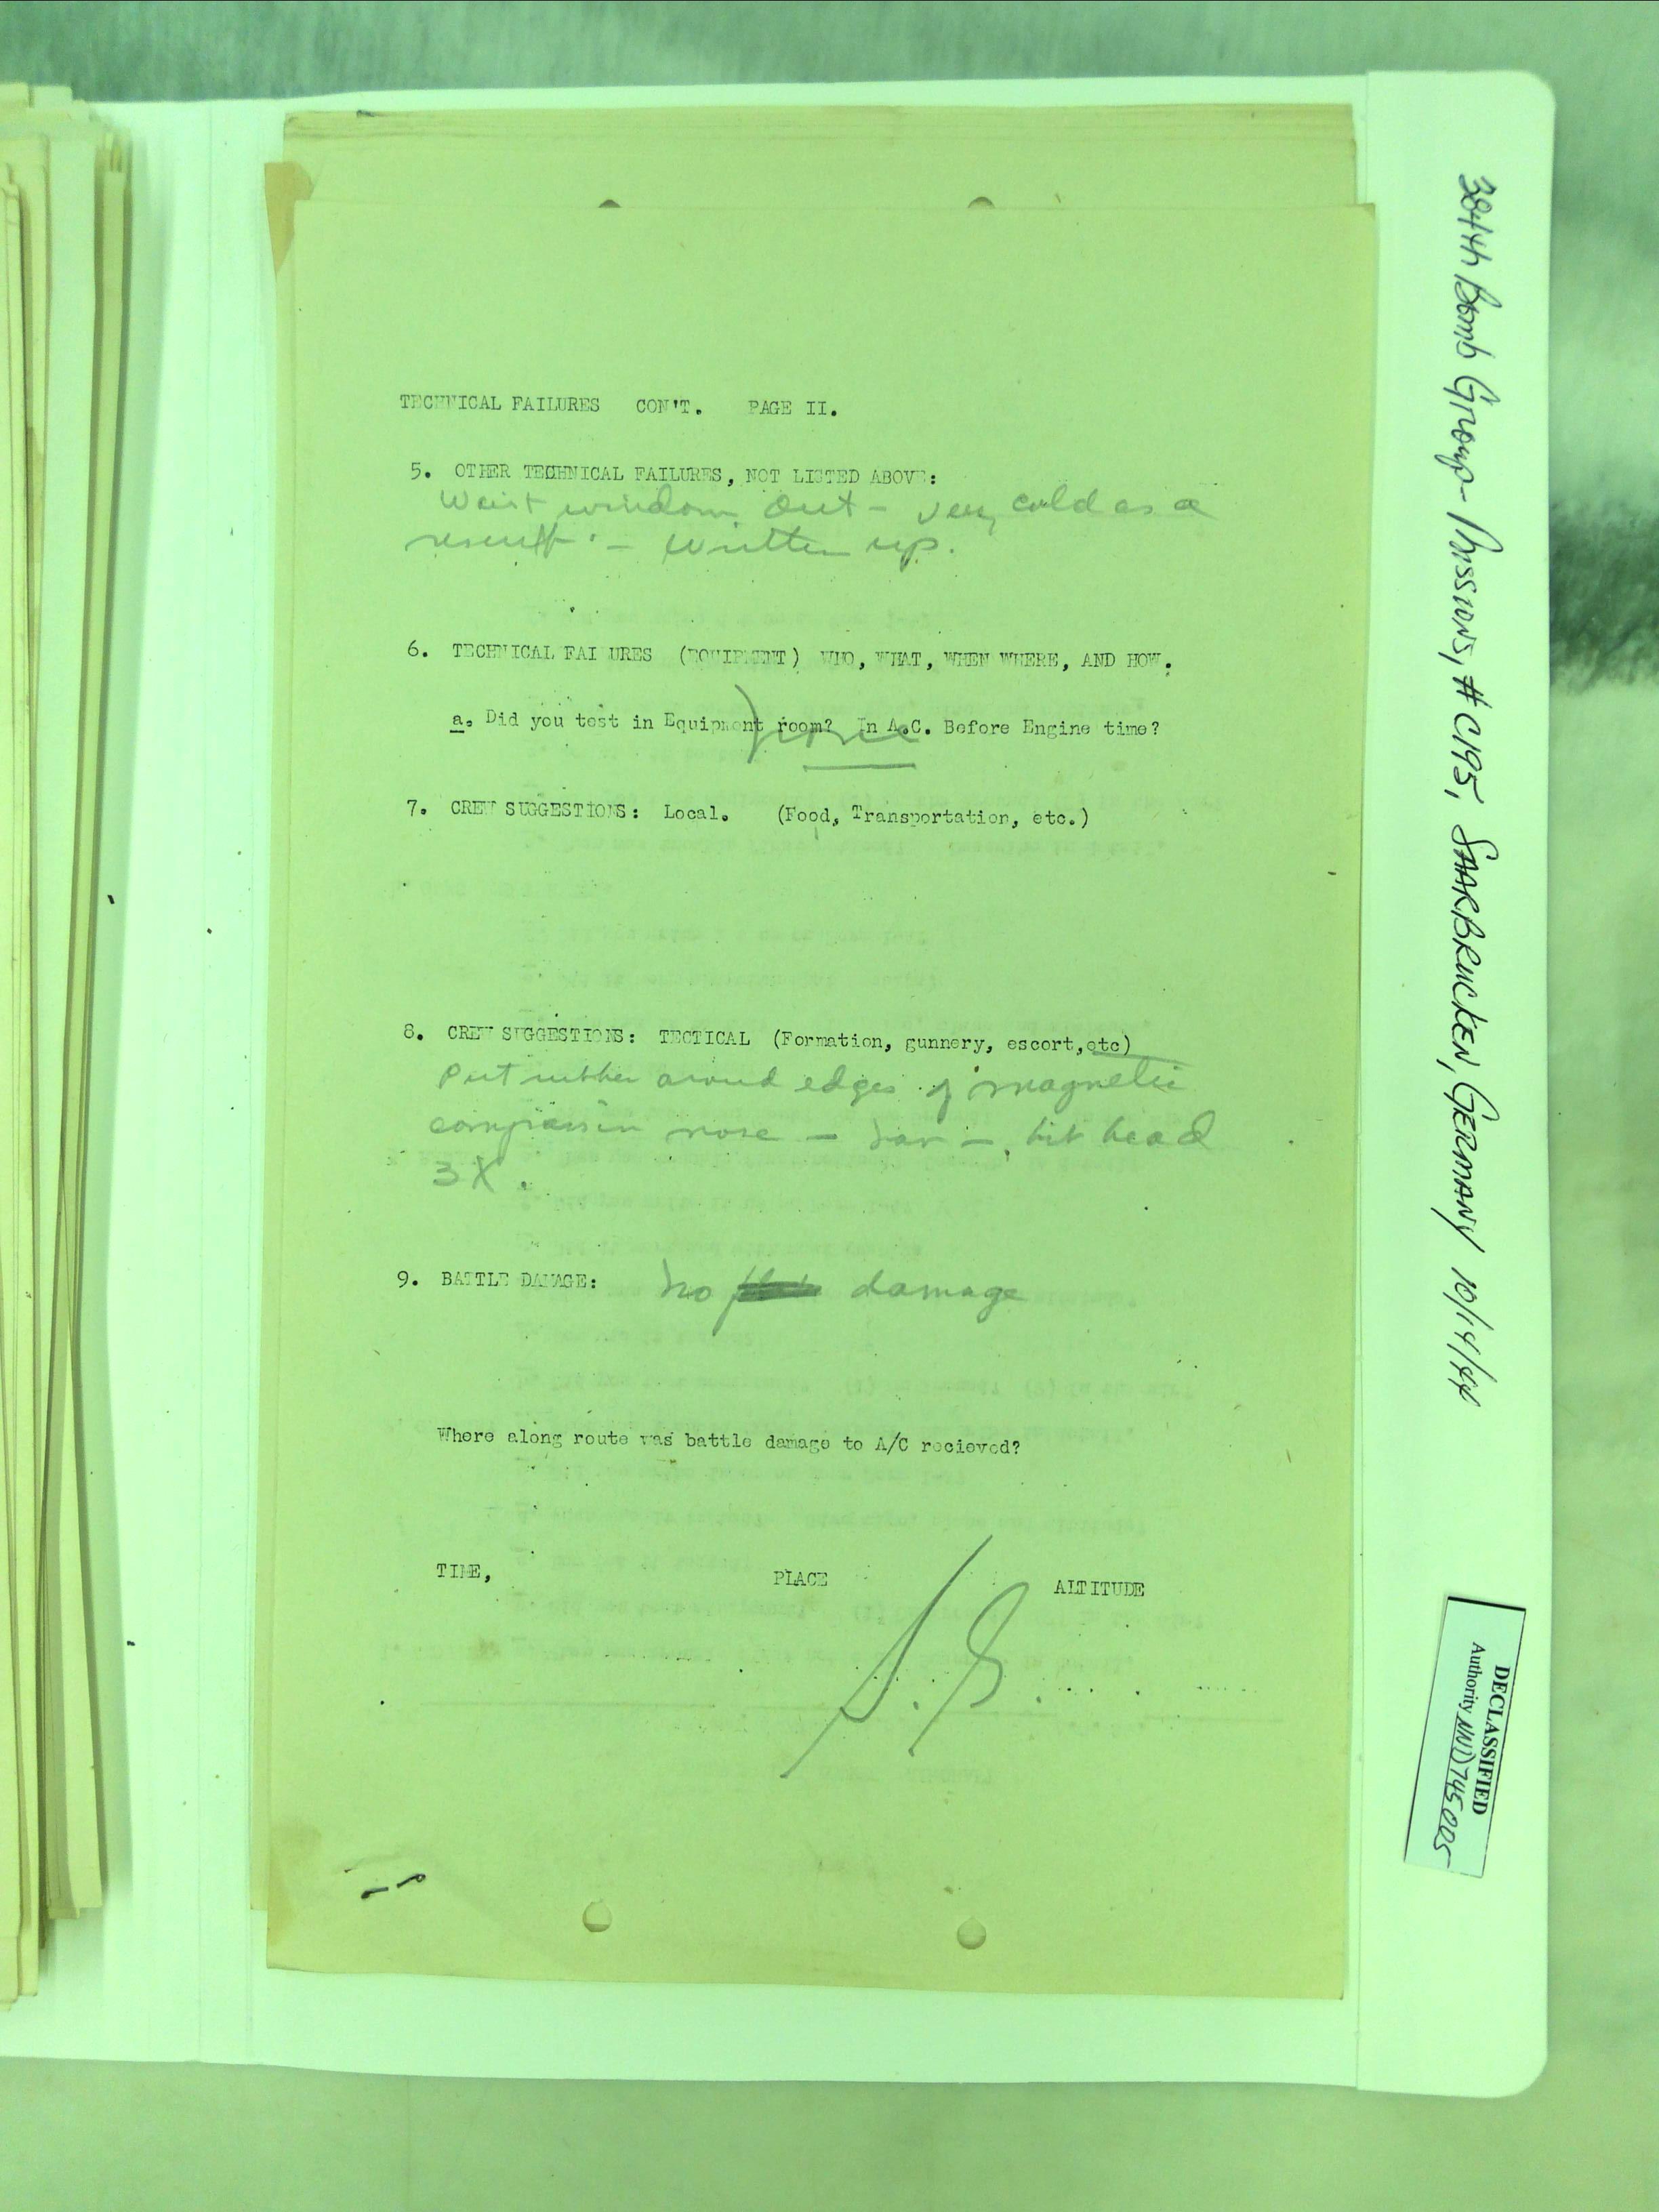 TECHNICAL FAILURES CON'T. PAGE II.
5. OTHER TECHNICAL FAILURES, NOT LISTED ABOVE:
Waist window out - very cold as a
result - written up.
6. TECHNICAL FAILURES (EQUIPMENT) WHO, WHAT, WHEN WHERE, AND HOW.
a. Did you test in Equipment room? In A.C. Before Engine time?
None
7. CREW SUGGESTIONS: Local. (Food, Transportation, etc.)
8. CREW SUGGESTIONS: TECTICAL (Formation, gunnery, escort,etc)
Put rubber around edges of magnetic
compass in nose - - hit head
3X.
9. BATTLE DAMAGE: No damage
Where along route was battle damage to A/C recieved?
TIME, PLACE ALTITUDE
384th Bomb Group - Missions, #C195, SAARBRUCKEN, GERMANY 10/14/44
DECLASSIFIED
Authority NND745005